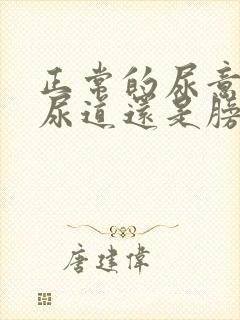 正常的尿意
尿道還是膀
唐建偉